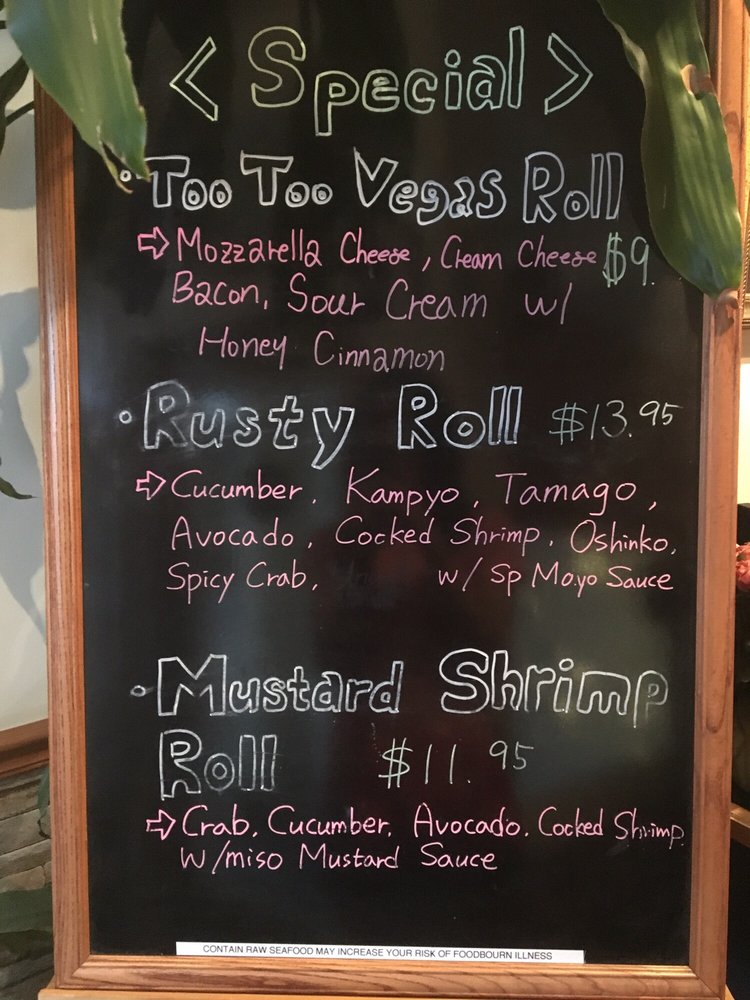 < Special >
• Too Too Vegas Roll
⇨ Mozzarella Cheese, Cream Cheese $9.
Bacon, Sour Cream w/
Honey Cinnamon
• Rusty Roll $13.95
⇨ Cucumber, Kampyo, Tamago,
Avocado, Cocked Shrimp, Oshinko,
Spicy Crab, w/ Sp Mayo Sauce
• Mustard Shrimp
Roll $11.95
⇨ Crab, Cucumber, Avocado, Cocked Shrimp
w/miso Mustard Sauce
CONTAIN RAW SEAFOOD MAY INCREASE YOUR RISK OF FOODBOURN ILLNESS